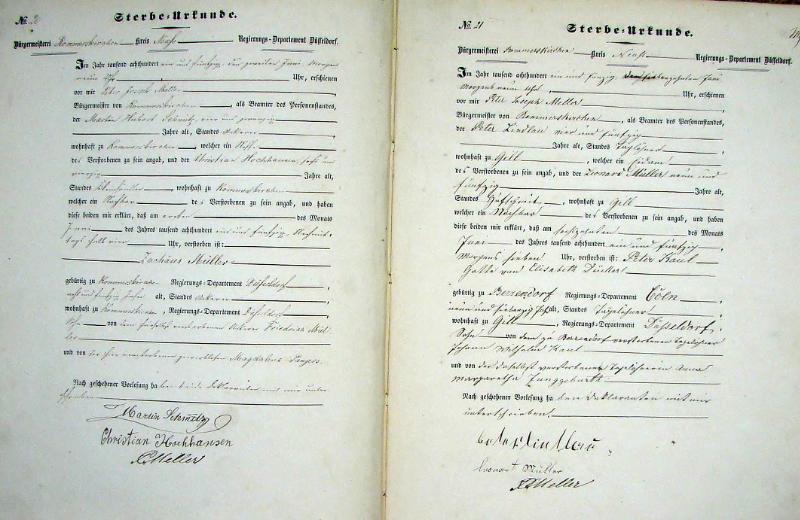 № 2
Sterbe-Urkunde.
Bürgermeisterei Rommerskirchen Kreis Neuß Regierungs-Departement Düsseldorf.
Im Jahr tausend achthundert ein und fünfzig, den zweiten Juni Morgens
neun Uhr, erschienen
vor mir Peter Joseph Meller
Bürgermeister von Rommerskirchen, als Beamter des Personenstandes,
der Martin Hubert Schmitz, vier und zwanzig
Jahre alt, Standes Ackerer
wohnhaft zu Rommerskirchen, welcher ein Neffe
des Verstorbenen zu sein angab, und der Christian Hochhausen, sechs und
Jahre alt,
Standes, wohnhaft zu Rommerskirchen
welcher ein Nachbar des Verstorbenen zu sein angab, und haben
diese beiden mir erklärt, daß am ersten des Monats
Juni des Jahres tausend achthundert ein und fünfzig Nachmit-
tags halb vier Uhr, verstorben ist:
Zachäus Müller
gebürtig zu Rommerskirchen Regierungs-Departement Düsseldorf,
und fünfzig Jahre alt, Standes Ackerer
wohnhaft zu Rommerskirchen, Regierungs-Departement Düsseldorf
Sohn von verstorbenen Ackerer Friedrich Mül-
ler
und von der verstorbenen Magdalena
Nach geschehener Vorlesung haben beide Deklaranten mit mir unter-
schrieben
Martin Schmitz
Christian Hochhausen
Meller
№ 21
Sterbe-Urkunde.
Bürgermeisterei Rommerskirchen Kreis Neuß Regierungs-Departement Düsseldorf.
Im Jahr tausend achthundert ein und fünfzig, den siebenzehnten Juni
Morgens neun Uhr, Uhr, erschienen
vor mir Peter Joseph Meller
Bürgermeister von Rommerskirchen, als Beamter des Personenstandes,
der Peter Lindlau vier und fünfzig
Jahre alt, Standes Taglöhner
wohnhaft zu Gill, welcher ein
des Verstorbenen zu sein angab, und der Leonard Müller neun und
fünfzig Jahre alt,
Standes, wohnhaft zu Gill
welcher ein Nachbar des Verstorbenen zu sein angab, und haben
diese beiden mir erklärt, daß am sechszehnten des Monats
Juni des Jahres tausend achthundert ein und fünfzig
Morgens sieben Uhr, verstorben ist: Peter Kaul
Gatte von Elisabeth
gebürtig zu Regierungs-Departement Cöln
neun und siebenzig Jahre alt, Standes Taglöhner
wohnhaft zu Gill, Regierungs-Departement Düsseldorf,
Sohn von dem zu verstorbenen Taglöhner
Johann Wilhelm Kaul
und von der daselbst verstorbenen Taglöhnerin Anna
Margaretha
Nach geschehener Vorlesung haben Deklaranten mit mir
unterschrieben.
Peter Lindlau
Leonard Müller
Meller